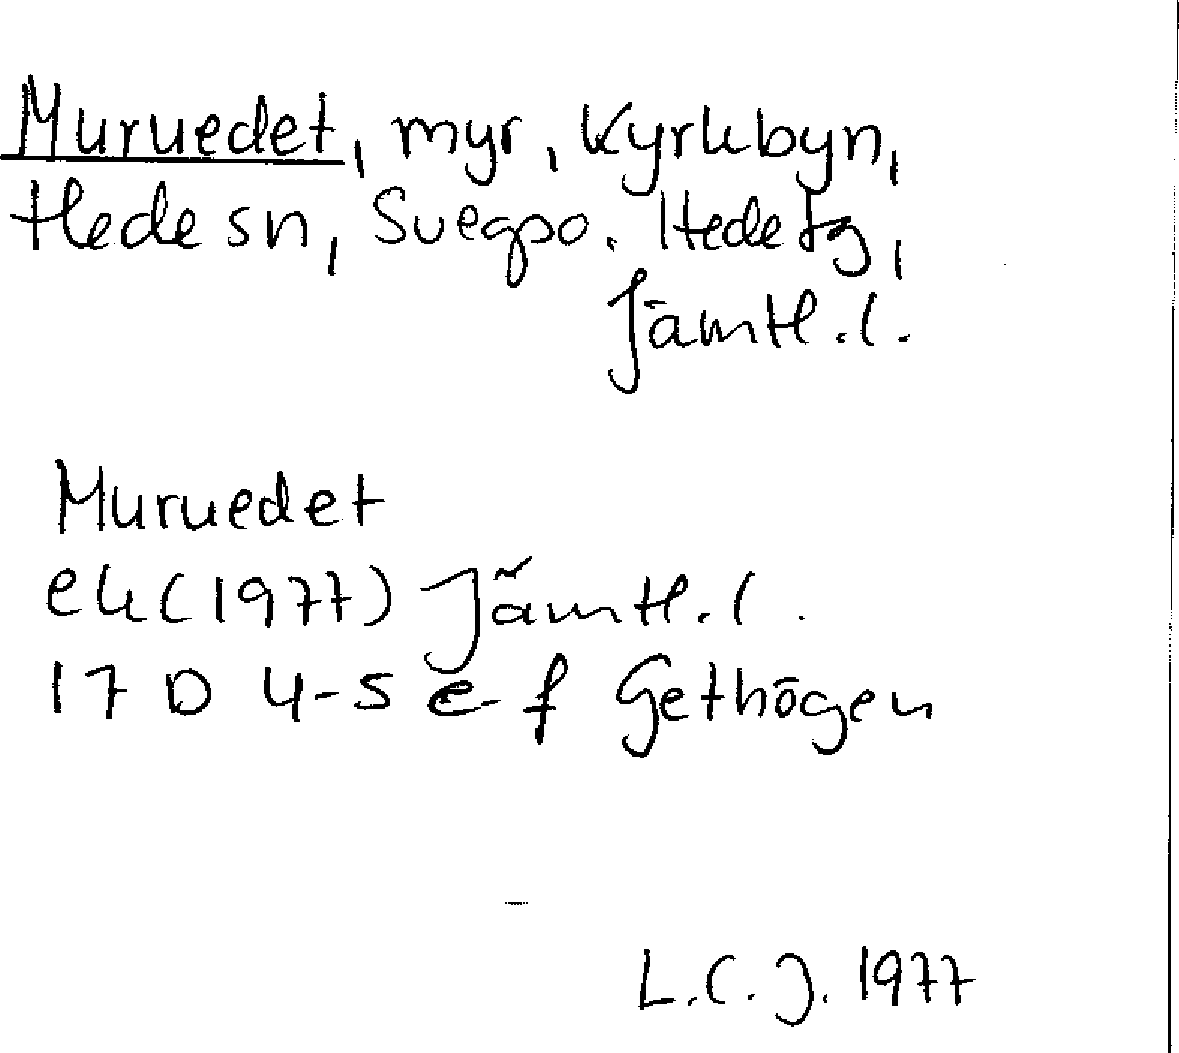 Muruedet, myr, Kyrkbyn,
Hede sn, Svegpo. Hede tg,
Jämtl. l.
Muruedet
ek (1977) Jämtl. l.
17 D 4-5 e-f Gethögen
L.C.J. 1977